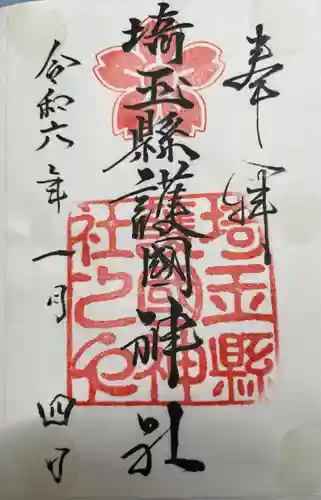 奉拝
埼玉縣護國神社
令和六年一月四日
埼玉縣
護國神
社之印